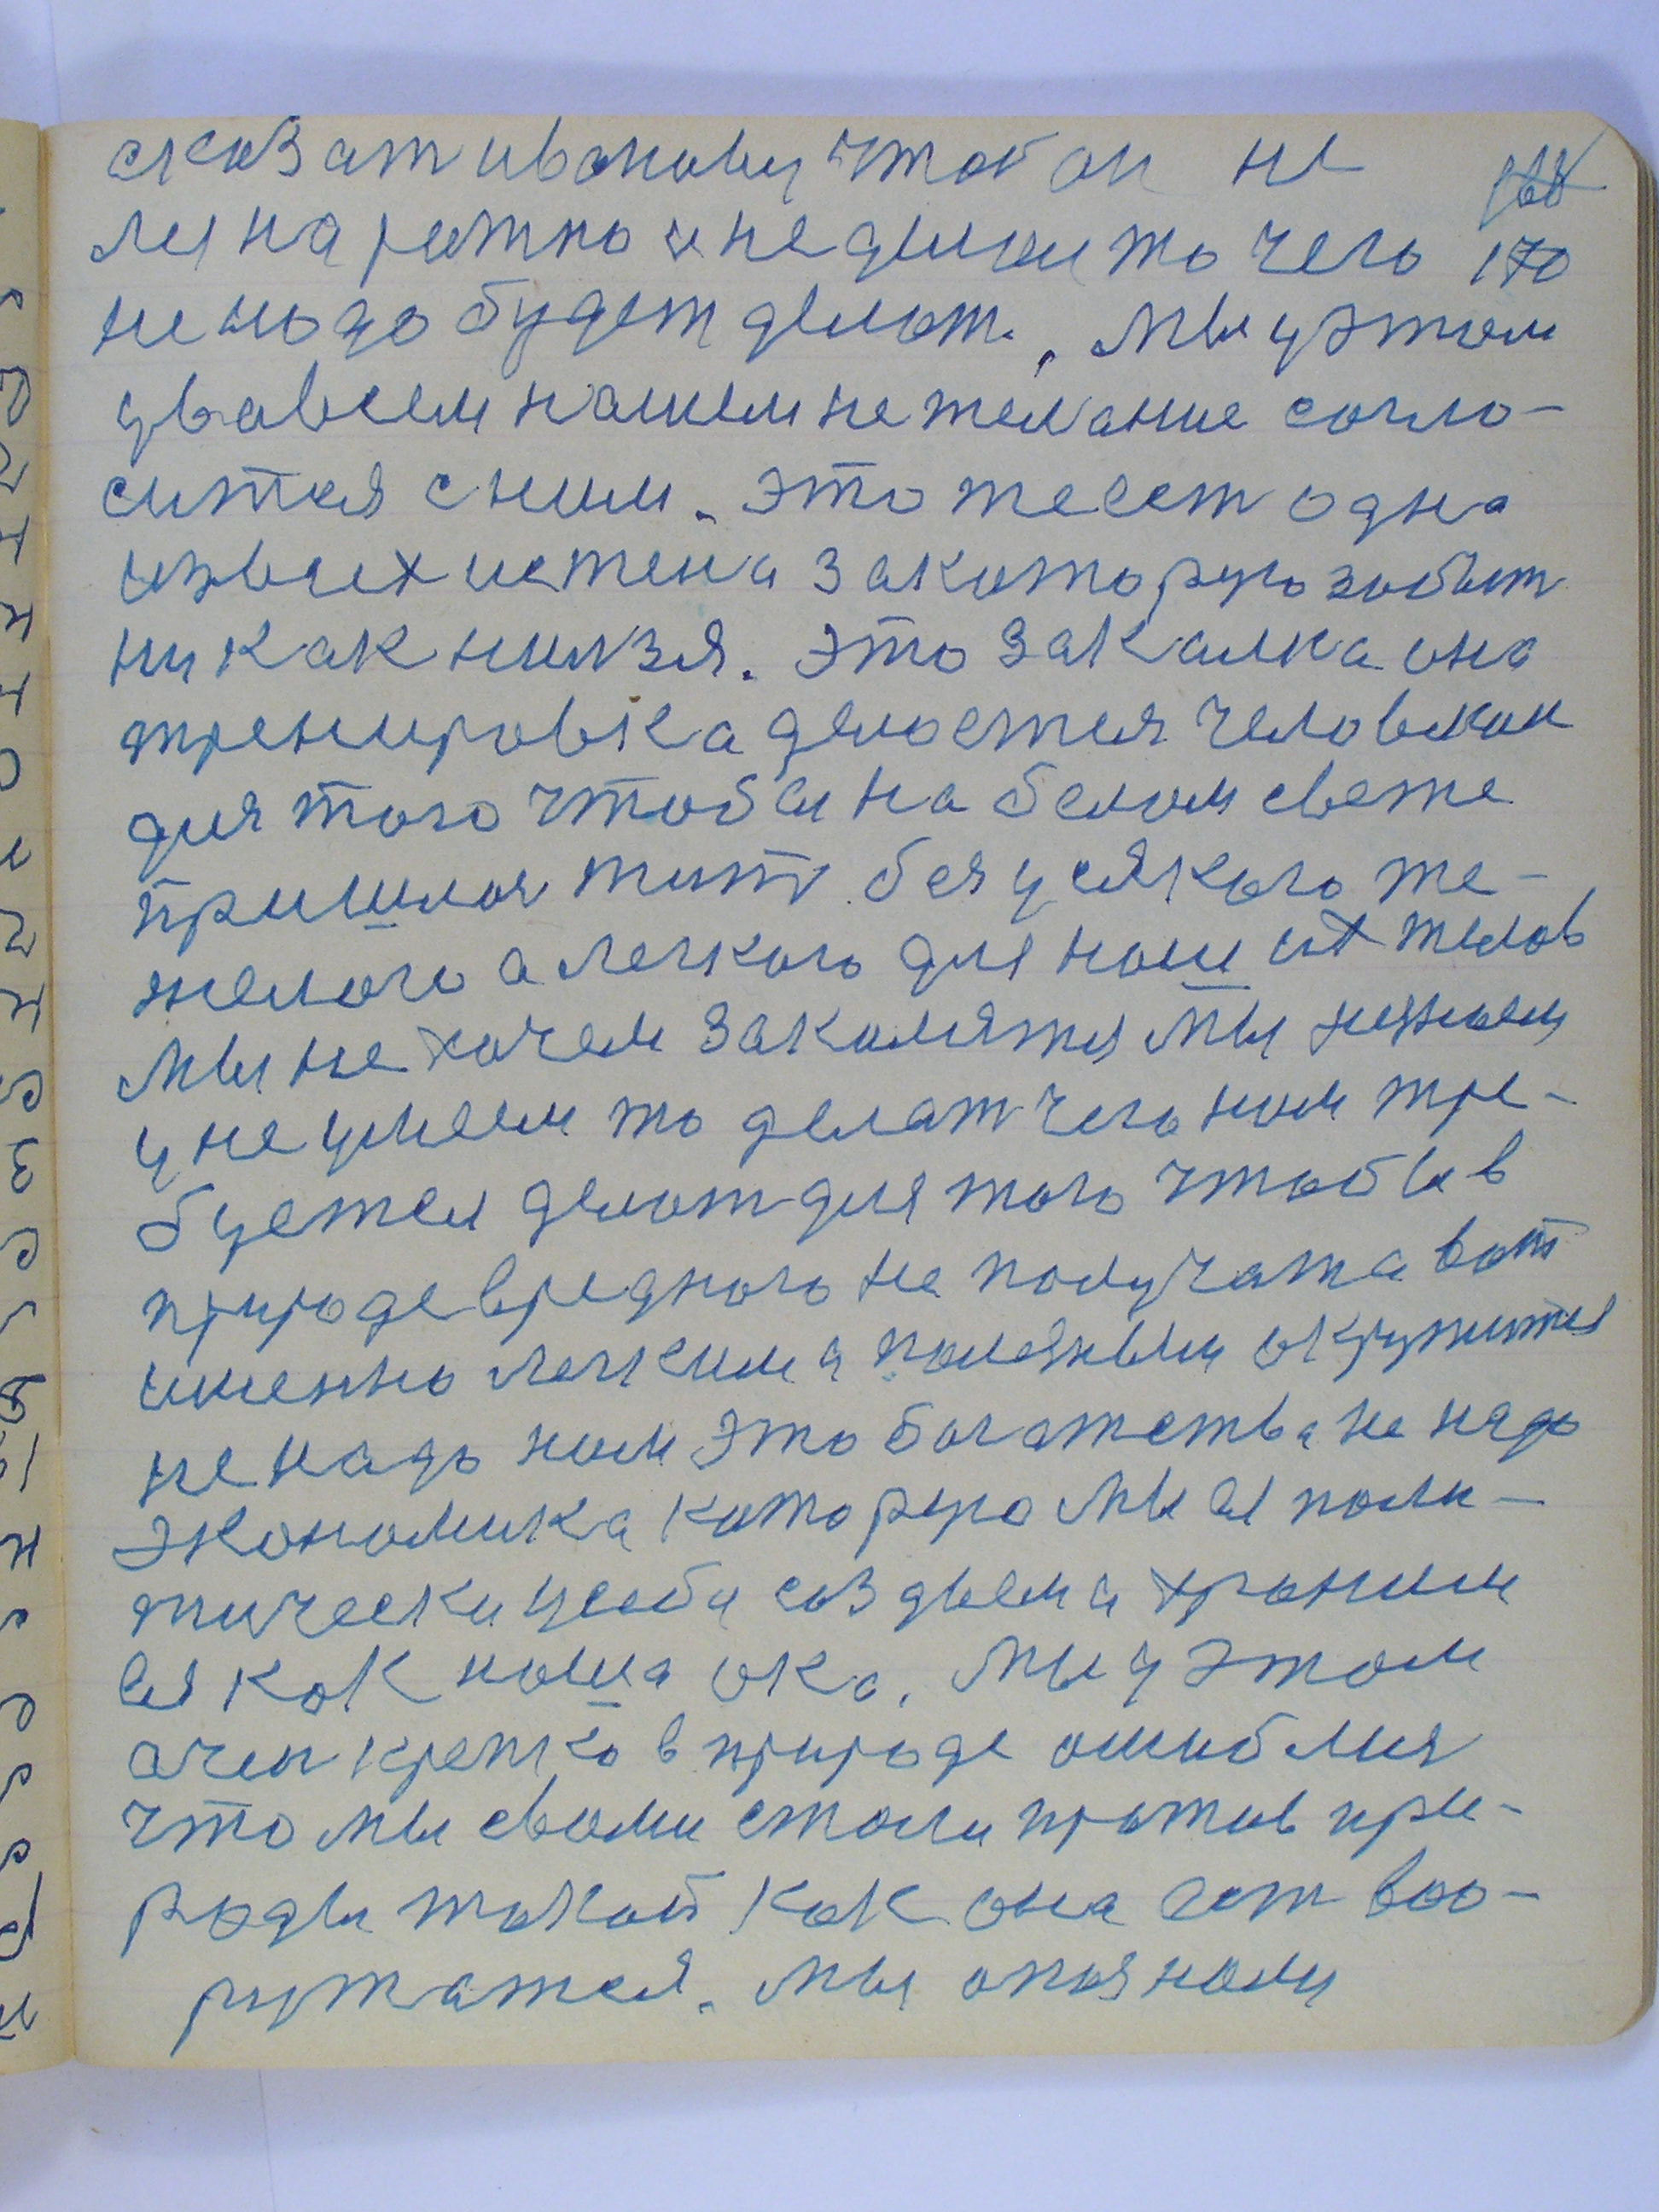 сказат иванову чтоб он не
168
170
мы на ратно и не дилаи то чего
не надо будет делат. Мы у этом
два всем нашем не желание согло-
ситися с ним. это же ест одна
из всех истена за которую забыт
ни как нилзя. это закалка она
тренировка делается человеком
для того чтобы на белом свете
пришлося жит без усякого те-
желого а легкого для наших телов
мы не хочем закалятя мы незнаем
и не умеем то делат чего ном тре-
буется делат для того чтобы в
природе вредного не получат а вот
именно легким и полезным окружится
не надо ном это богатества не надо
экономика которую мы ей поли-
тически усобу создаем и храним
ея как наша ока. Мы у этом
очен крепко в природе ошиблися
что мы своми стали против при-
роды такой как она ест воо-
ружатся. Мы опознали